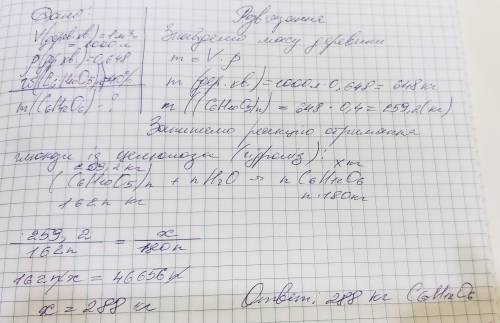 Дано:
V(дер. хв.) = 1 м³
= 1000 л
ρ(дер. хв.) = 0,648
W(C₆H₁₀O₅)n = 40%
m(C₆H₁₂O₆) - ?
Розв'язання
Знайдемо масу деревини
m = V · ρ
m (дер. хв.) = 1000 · 0,648 = 648 кг
m ((C₆H₁₀O₅)n) = 648 · 0,4 = 259,2 (кг)
Запишемо реакцію отримання
глюкози із целюлози (гідроліз):
259,2 кг x кг
(C₆H₁₀O₅)n + n H₂O → n C₆H₁₂O₆
162n кг n·180 кг
259,2/162n = x/180n
162 n x = 46656 n
x = 288 кг
Ответ: 288 кг C₆H₁₂O₆